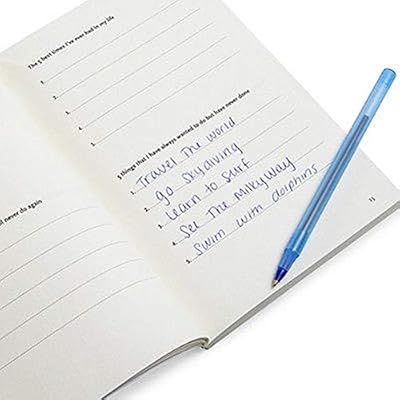 The 5 best times I've ever had in my life
1.
2.
3.
4.
5.
5 things that I have always wanted to do but have never done
1. Travel The world
2. go skydiving
3. Learn to surf
4. See The Milkyway
5. Swim wim dolphins
ll never do again
15